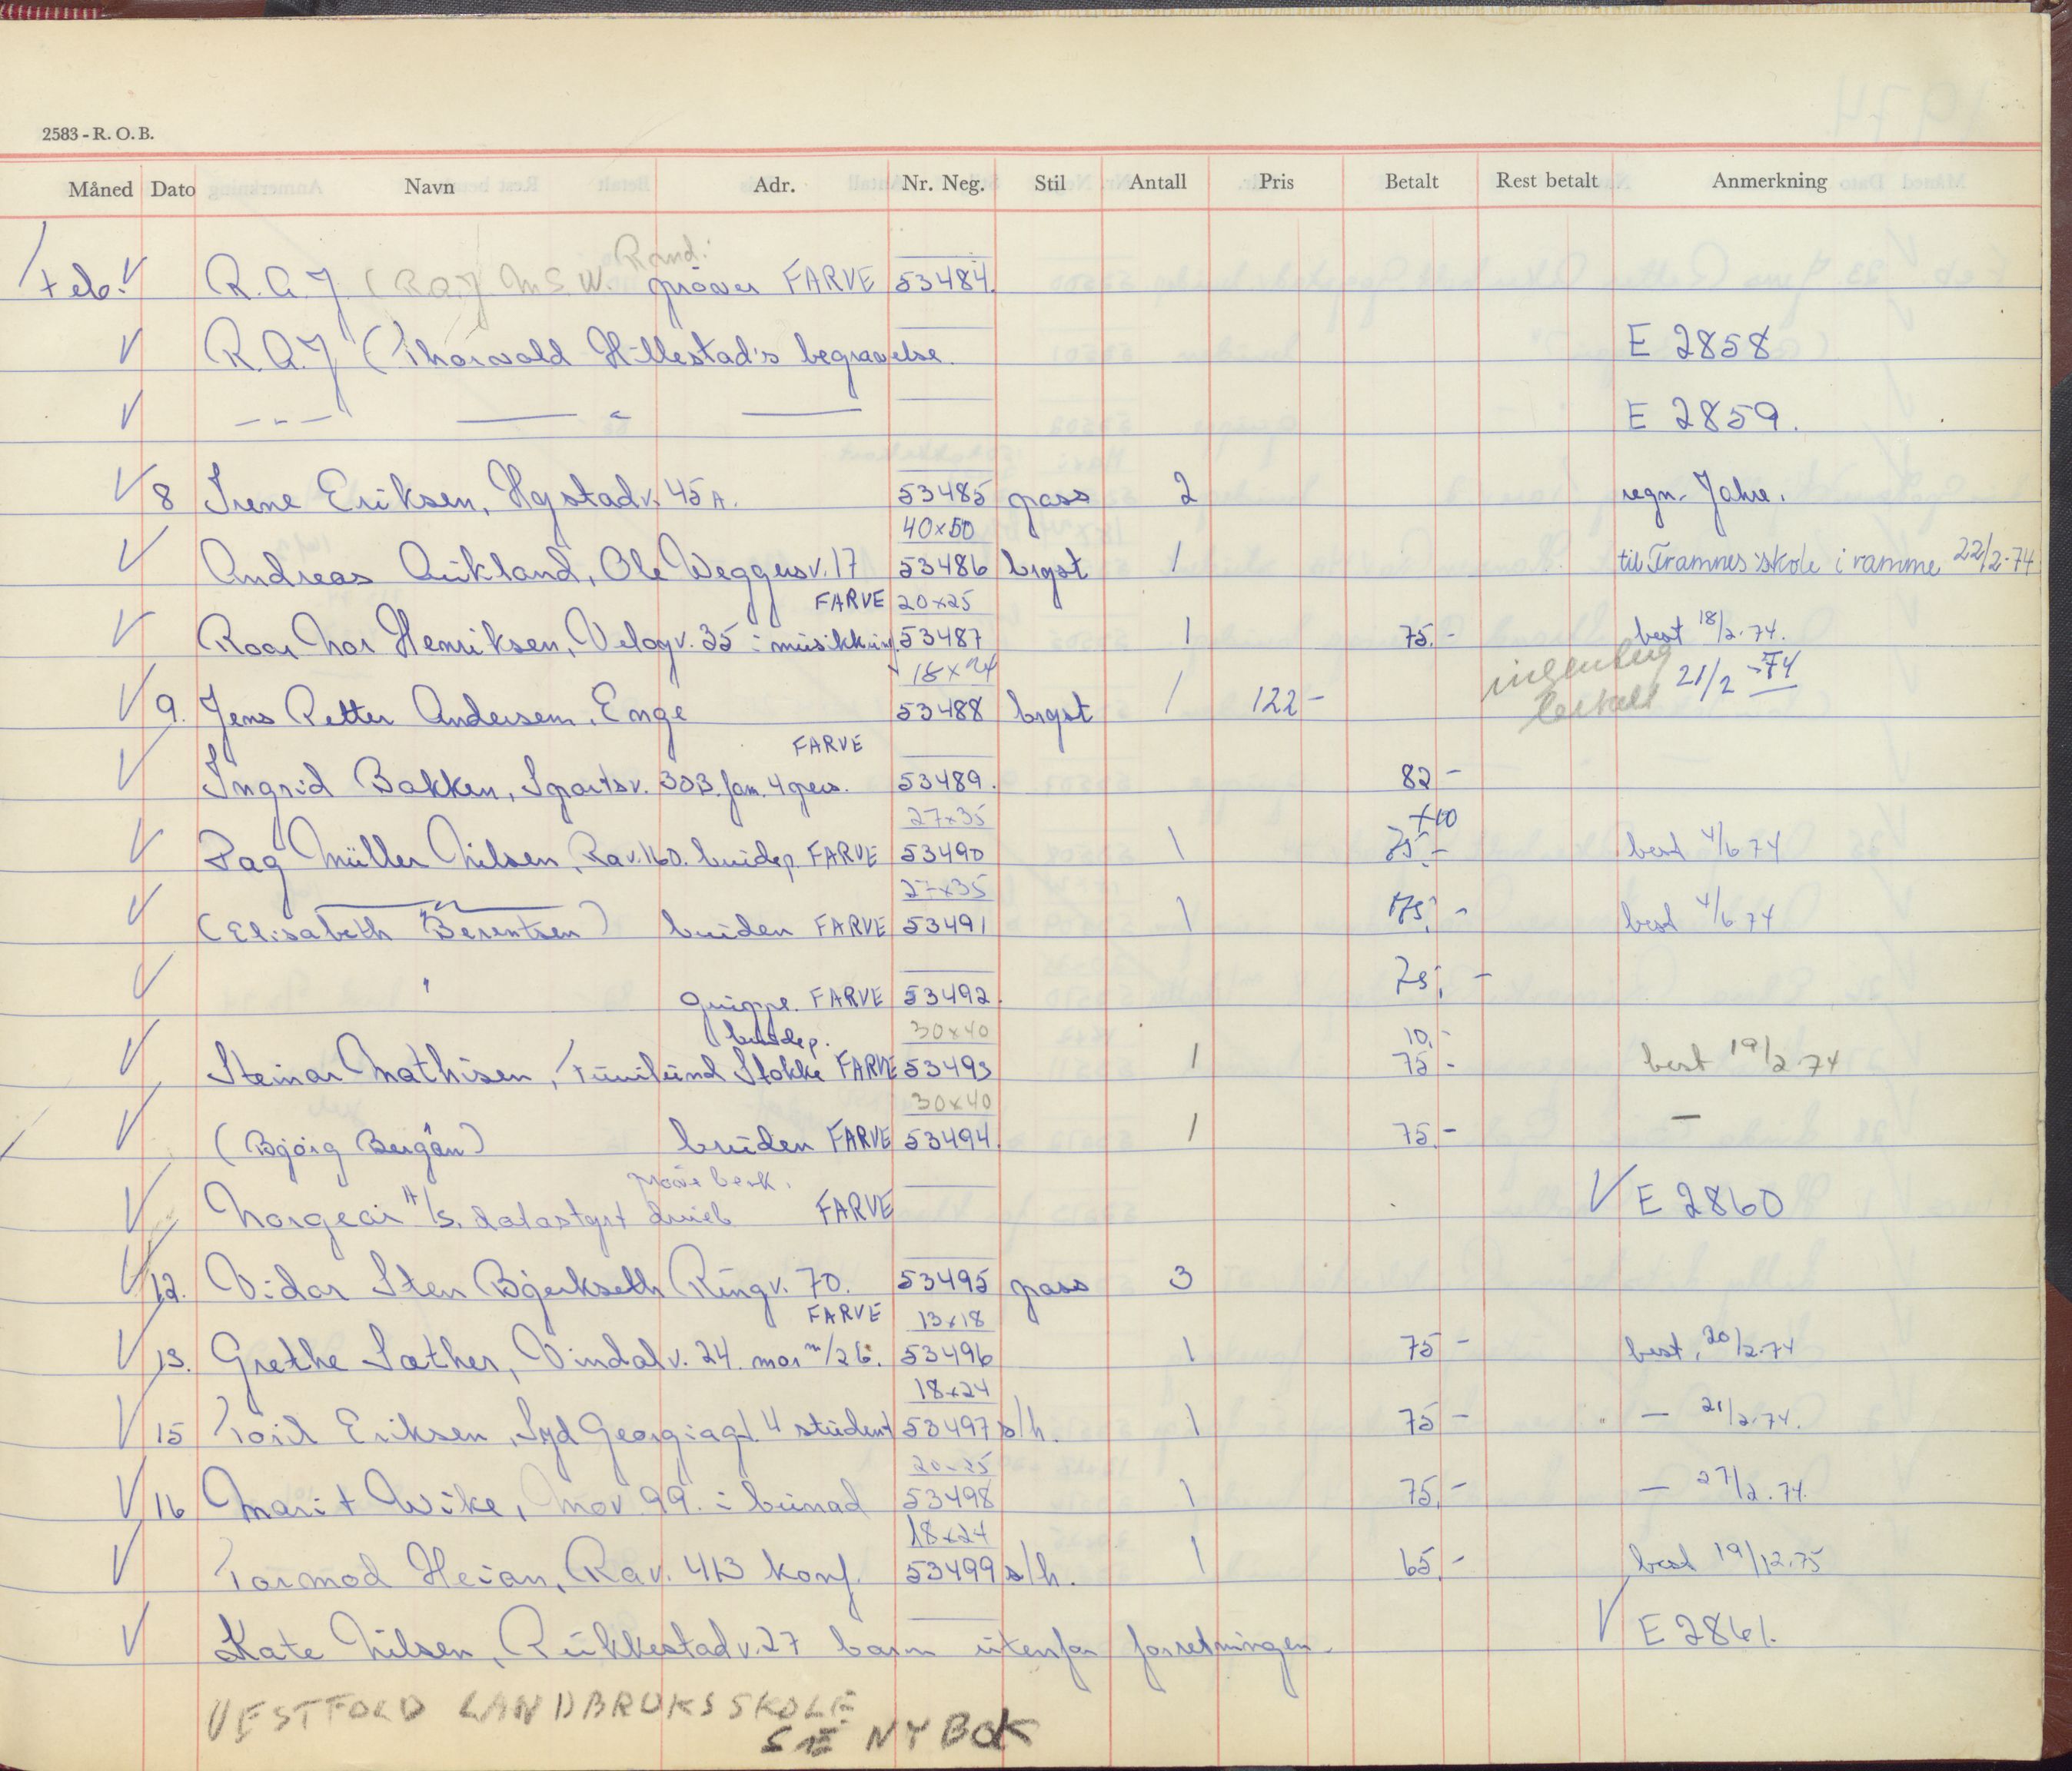 2583 - R. O. B.
Måned Dato Navn Adr. Nr. Neg. Stil Antall Pris Betalt Rest betalt Anmerkning
Rand.
Feb. R.A.J (R.A.J M.S.W. prøver FARVE 53484.
R.A.J (Thorvald Hillestad's begravelse. E 2858
--- — " — E 2859.
8 Irene Eriksen, Hystadv. 45A. 53485 pass 2 regn. Jahre.
40x50
Andreas Aukland, Ole Weggersv. 17 53486 bryst 1 til Framnes skole i ramme 22/2-74
FARVE 20x25
Roar Mar Henriksen, Velogv. 35 i musikkuni 53487 1 75.- best 18/2.74.
18x24 ingenting 21/2 -74
9. Jens Petter Andersen, Enge 53488 bryst 1 122- bestilt
FARVE
Ingrid Bakken, Sportsv. 30B. fam. 4 pers. 53489. 82-
27x35 +10
Dag Müller Nilsen, Rav. 160. brudep. FARVE 53490 1 75.- best 4/6 74
27x35
(Elisabeth Berentsen) bruden FARVE 53491 1 75.- best 4/6 74
" gruppe. FARVE 53492. 75.-
brudep. 30x40 10.-
Steinar Mathisen, Furulund Stokke FARVE 53493 1 75- best 19/2 74
30x40
(Bjørg Bergan) bruden FARVE 53494. 1 75.- —
prøve besk.
Norgear A/S. datastyrt FARVE E 2860
12. Vidar Sten Bjerkseth Ringv. 70. 53495 pass 3
FARVE 13x18
13. Grethe Sæther, Vindalv. 24. mor m/26. 53496 1 75- best. 20/2.74
18x24
15 Toril Eriksen, Syd Georgiagt. 4 student 53497 s/h. 1 75- — 21/2.74.
20x25
16 Marit Wike, Mov. 99. i bunad 53498 1 75.- — 27/2.74.
18x24
Tormod Heian, Rav. 413 konf. 53499 s/h. 1 65.- best 19/12.75
Kate Nilsen, Rukkestadv. 27 barn utenfor forretningen. E 2861.
VESTFOLD LANDBRUKSSKOLE
SE NY BOK